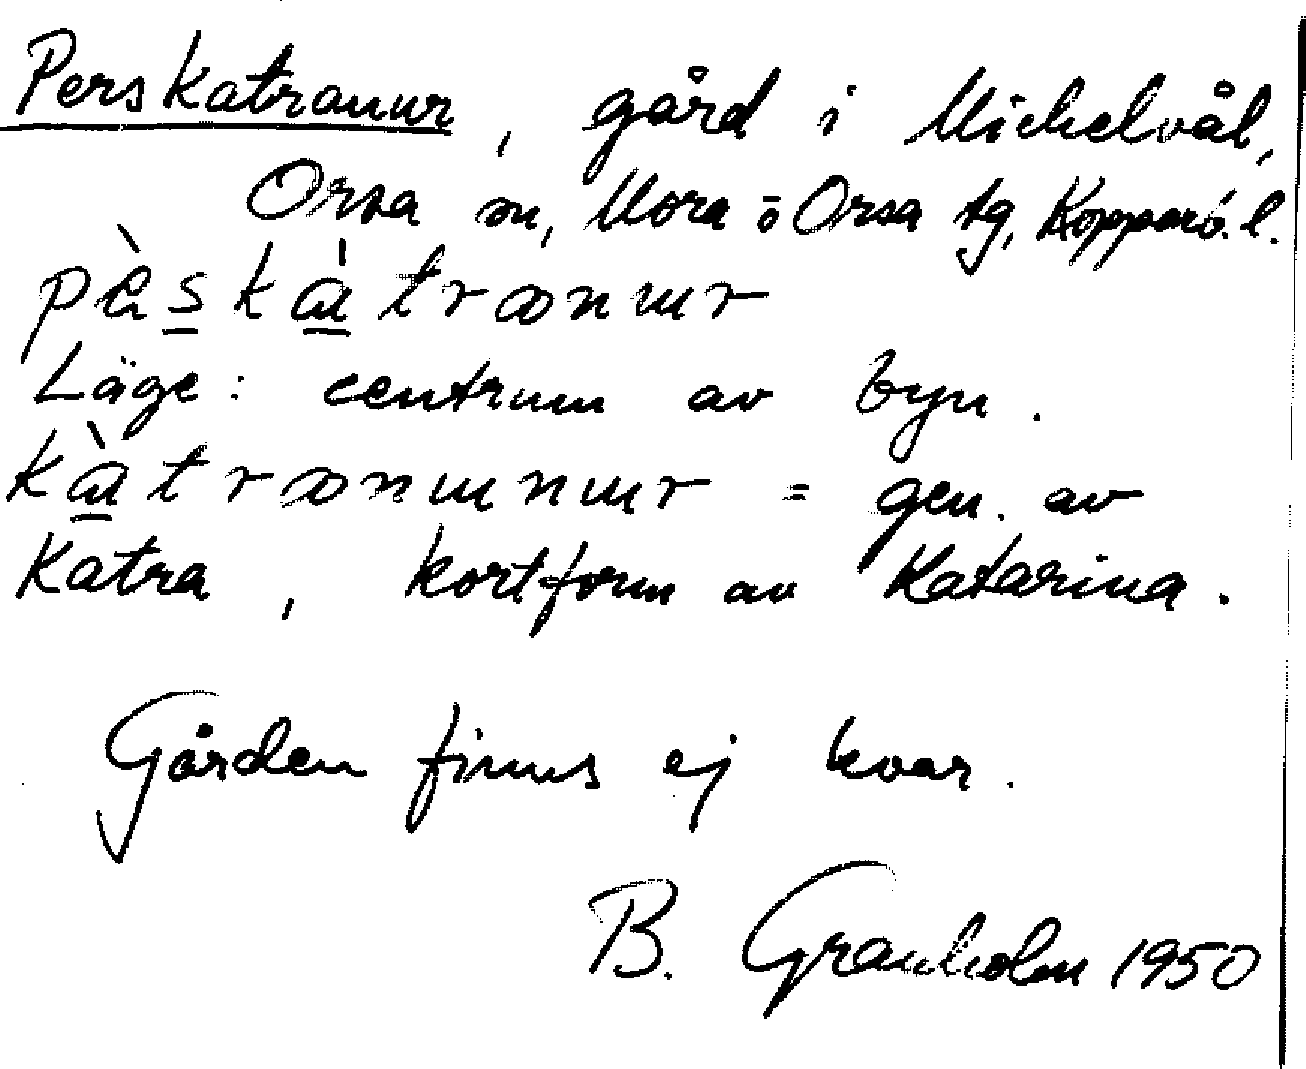 Perskatranur, gård i Mickelvål,
Orsa sn, Mora o Orsa tg, Kopparb. l.
pèskàtrænur
Läge: centrum av byn.
kàtrænunur = gen. av
Katra, kortform av Katarina.
Gården finns ej kvar.
B. Granholm 1950